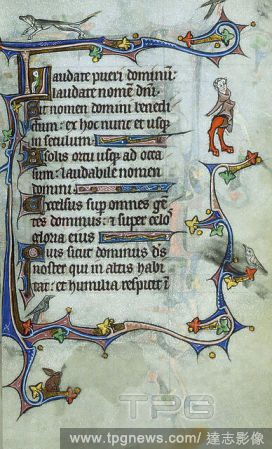 Laudate pueri dominū:
laudate nomē dn̄i.
Sit nomen domini benedi
ctum: ex hoc nunc et usq̄
in seculum
A solis ortu usq̄ ad occa
sum: laudabile nomen
domini.
Excelsus sup omnes gē
tes dominus: ⁊ super celos
gloria eius
Quis sicut dominus ds̄
noster qui in altis habi
tat: et humilia respicit ī
TPG
www.tpgnews.com/ 達志影像